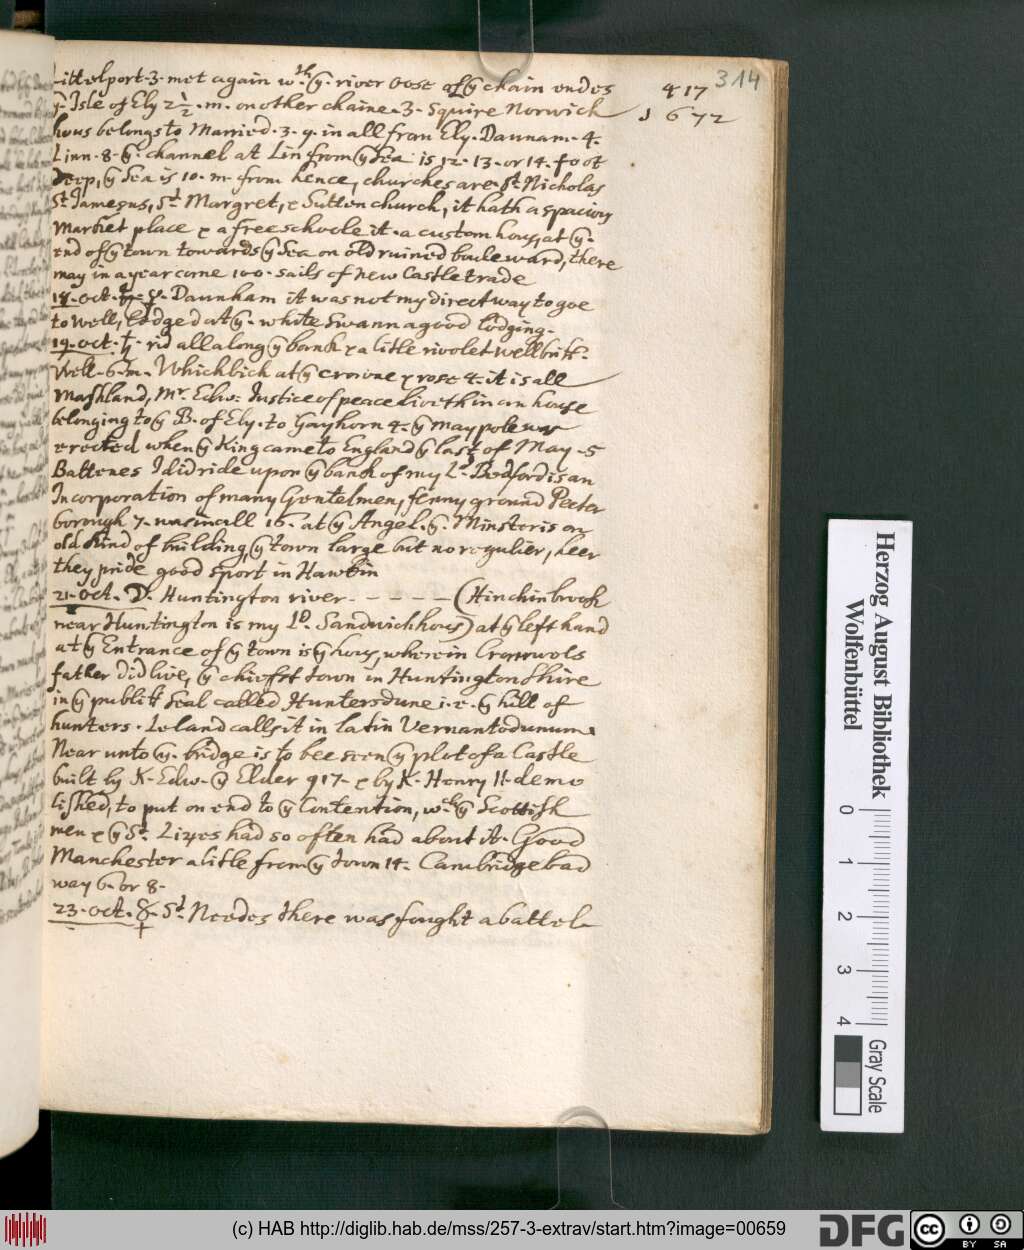 314
417
1672
Littelport 3. met again wth. ye. river oose of ye chain endes
ye. Isle of Ely 2 1/2. m. on other chaine. 3. Squire Norwick
hous belongs to Married. 3. 9. in all from Ely. Daunam. 4.
Linn. 8. ye. channel at Lin from ye Sea is 12. 13. or 14. foot
deep, ye Sea is 10. m. from hence, churches are St. Nicholas
St. Jameses, St. Margret, & Sutten church, it hath a spacious
market place & a free schoole it. a custom hous, at ye.
end of ye town towards ye Sea on old ruined bouleward, there
may in a year come 100. sails of new Castle trade
18. oct. Daunham it was not my direct way to goe
to well, lodged at ye. white Swann a good lodging.
19. oct. rid all along ye banck & a litle rivolet wellbrik.
Well. 6. m. Whichbich at ye crowne & rose 4. it is all
Mashland, Mr. Edw. Justice of peace liveth in an house
belonging to ye B. of Ely. to Gayhorn 4. ye maypole was
erected when ye King came to England ye last of May. 5
Battenes I did ride upon ye bank of my Ld. Bedford is an
Incorporation of many Gentelmen, fenny ground Peeter
borough 7. was in all 16. at ye Angel. ye. Minster is an
old kind of building, ye town large but no regulier, heer
they pride good sport in Hawkin
21. oct. D. Huntington river - - - - - (Hinchinbroock
near Huntington is my Ld. Sandwich hous) at ye left hand
at ye Entrance of ye town is ye hous, wherein Cromwols
father did live, ye chiefst town in Huntingtonshire
in ye publik Seal called Huntersdune i. e. ye hill of
hunters. Leland calls it in latin Vernantodunum.
Near unto ye. bridge is to bee seen ye plot of a Castle
built by K. Edw. ye Elder 917. & by K. Henry II. demo
lished, to put an end to ye Contention, wch ye Scottish
men & ye St. Lizes had so often had about it. Good
Manchester a litle from ye town 14. Cambridge bad
way 6. or 8.
23. oct. St. Needes there was fought a battel
Herzog August Bibliothek
Wolfenbüttel
0 1 2 3 4
Gray Scale
(c) HAB http://diglib.hab.de/mss/257-3-extrav/start.htm?image=00659
DFG
cc BY SA